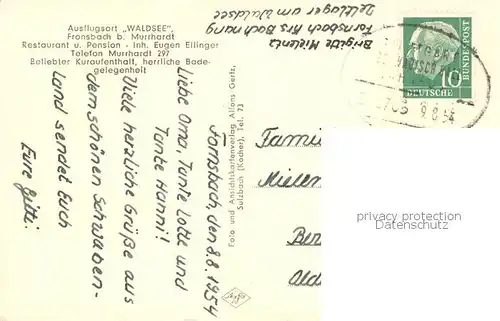 Ausflugsort „WALDSEE",
Fronsbach b. Murrhardt
Restaurant u. Pension - Inh. Eugen Ellinger
Telefon Murrhardt 297
Beliebter Kuraufenthalt, herrliche Bade-
gelegenheit
Brigitte Mielentz
Fornsbach Krs Backnang
Zeltlager am Waldsee
Fornsbach, den 8.8.1954
Liebe Oma, Tante Lotte und
Tante Hanni!
Viele herzliche Grüße aus
dem schönen Schwaben-
land sendet Euch
Eure Gitti.
Foto und Ansichtskartenverlag Alfons Gertz,
Sulzbach (Kocher), Tel. 73
10
DEUTSCHE
BUNDESPOST
9.8.54
Familie
Mielen
Ber
Old
privacy protection
Datenschutz